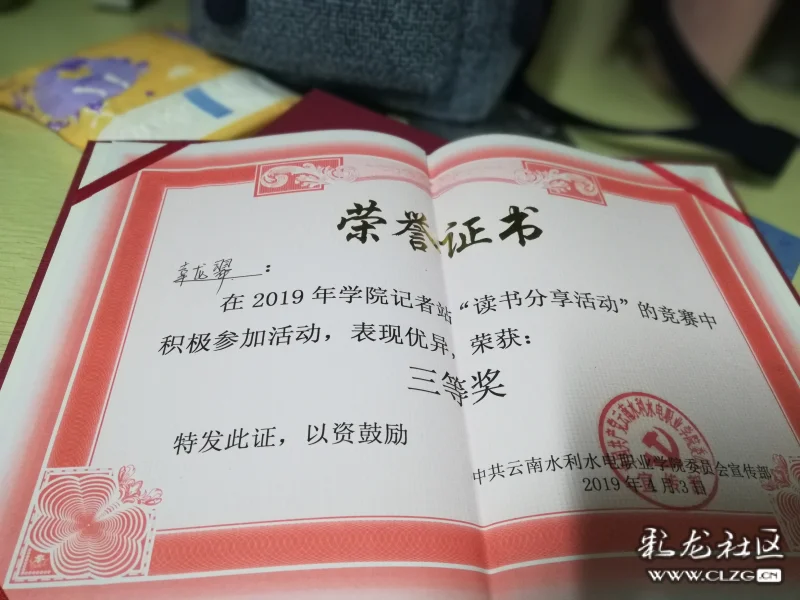 荣誉证书
在2019年学院记者站“读书分享活动”的竞赛中
积极参加活动，表现优异，荣获：
三等奖
特发此证，以资鼓励
中共云南水利水电职业学院委员会宣传部
2019年4月3日
彩龙社区
WWW.CLZG.CN